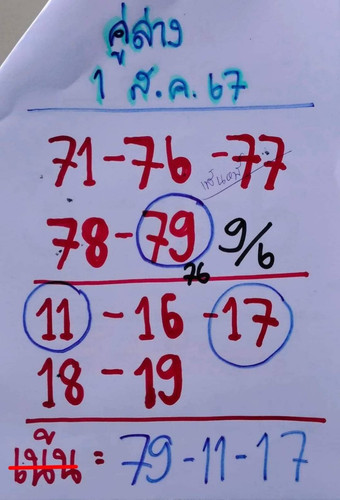 คู่ล่าง
1 ส.ค. 67
71-76-77
78-79 9/6
76
11-16-17
18-19
เน้น = 79-11-17